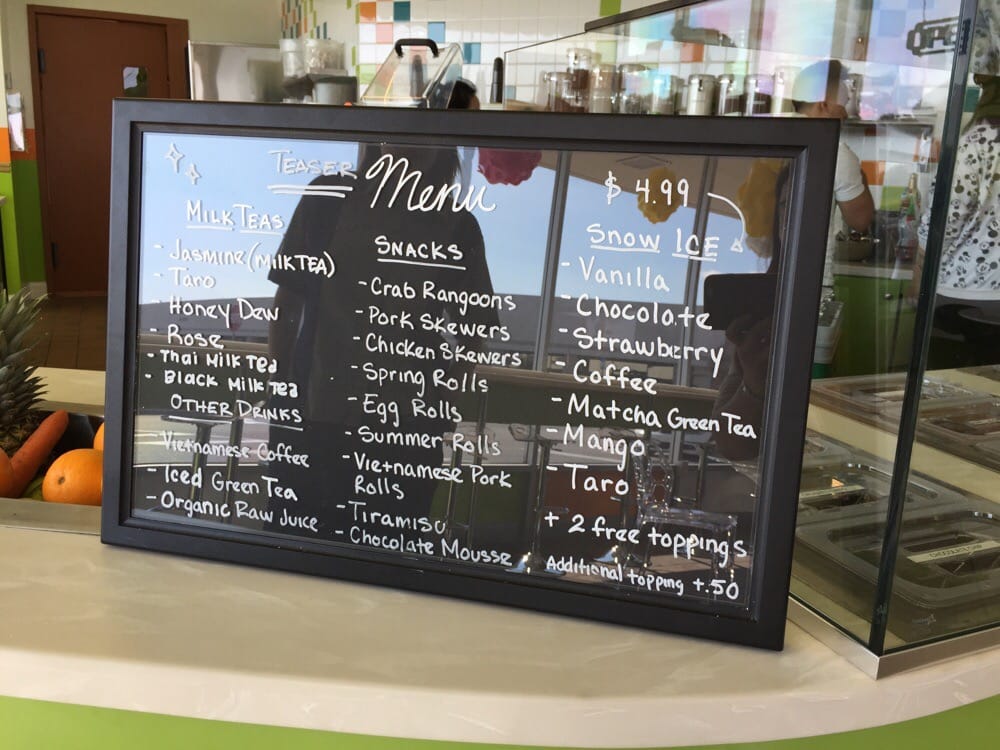 TEASER Menu
MILK TEAS
- Jasmine (MILK TEA)
- Taro
- Honey Dew
- Rose
- Thai Milk Tea
- Black Milk Tea
OTHER DRINKS
- Vietnamese Coffee
- Iced Green Tea
- Organic Raw Juice
SNACKS
- Crab Rangoons
- Pork Skewers
- Chicken Skewers
- Spring Rolls
- Egg Rolls
- Summer Rolls
- Vietnamese Pork
Rolls
- Tiramisu
- Chocolate Mousse
$4.99
SNOW ICE
- Vanilla
- Chocolate
- Strawberry
- Coffee
- Matcha Green Tea
- Mango
- Taro
+ 2 free toppings
Additional topping +.50
OPE
CHOCOLATE CHIP